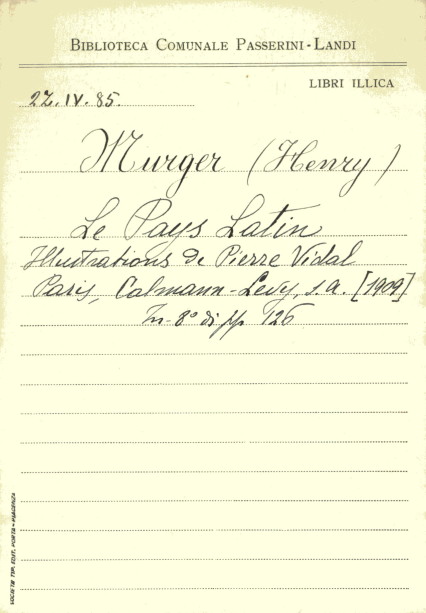 BIBLIOTECA COMUNALE PASSERINI-LANDI
LIBRI ILLICA
22.IV.85.
Murger (Henry)
Le Pays Latin
Illustrations de Pierre Vidal
Paris, Calmann-Levy, s.a. [1909]
In-8° di pp 126
SOCIETÀ TIP. EDIT. PORTA - PIACENZA